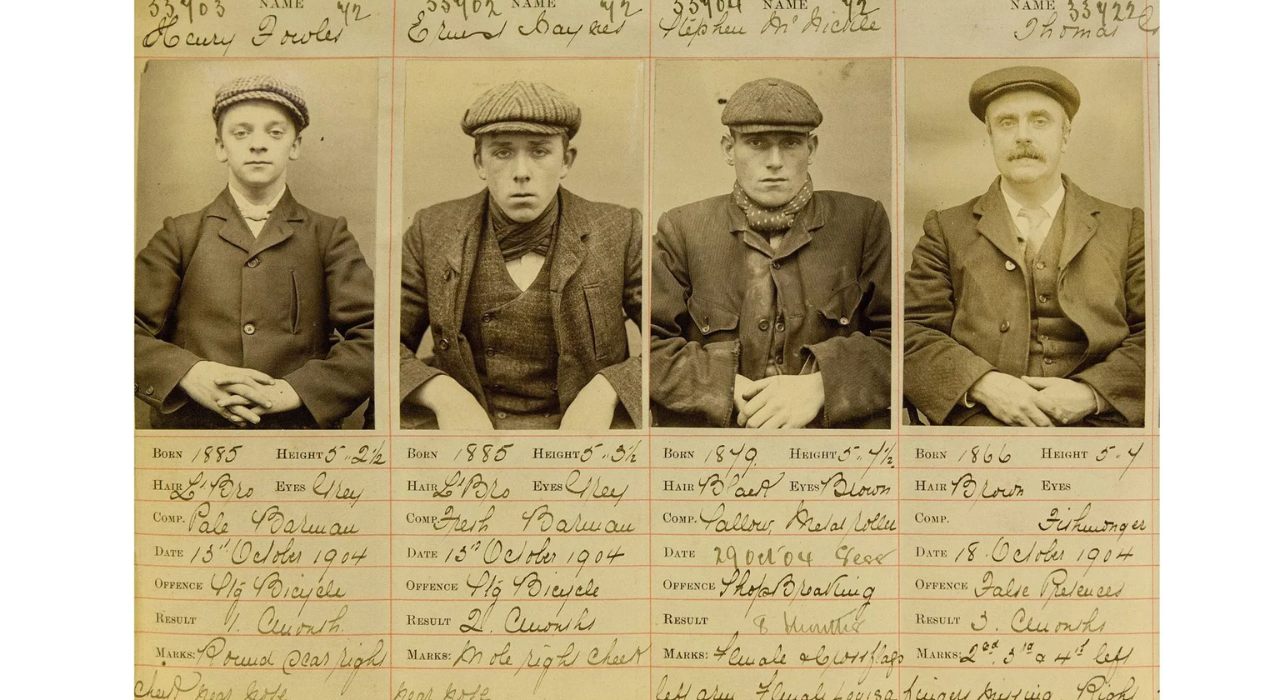 NAME NAME NAME NAME 33422
Henry Fowler Ernest Haynes Stephen McNickle Thomas
BORN 1885 HEIGHT 5..2½ BORN 1885 HEIGHT 5..3½ BORN 1879. HEIGHT 5..4½ BORN 1866 HEIGHT 5..4
HAIR Lt Bro EYES Grey HAIR Lt Bro EYES Grey HAIR Black EYES Brown HAIR Brown EYES
COMP. Pale Barman COMP. Fresh Barman COMP. Sallow, Metal roller COMP. Fishmonger
DATE 13th October 1904 DATE 13th October 1904 DATE 29 Oct '04 Sess DATE 18. October 1904
OFFENCE Stg Bicycle OFFENCE Stg Bicycle OFFENCE ShopBreaking OFFENCE False Pretences
RESULT 1. Cmonth. RESULT 2. Cmonths RESULT 8 months RESULT 3. Cmonths
MARKS: Round scar right MARKS: Mole right cheek MARKS: Female & Crossflags MARKS: 2nd, 3rd & 4th left
cheek near nose near nose left arm Female Louisa fingers missing. Right